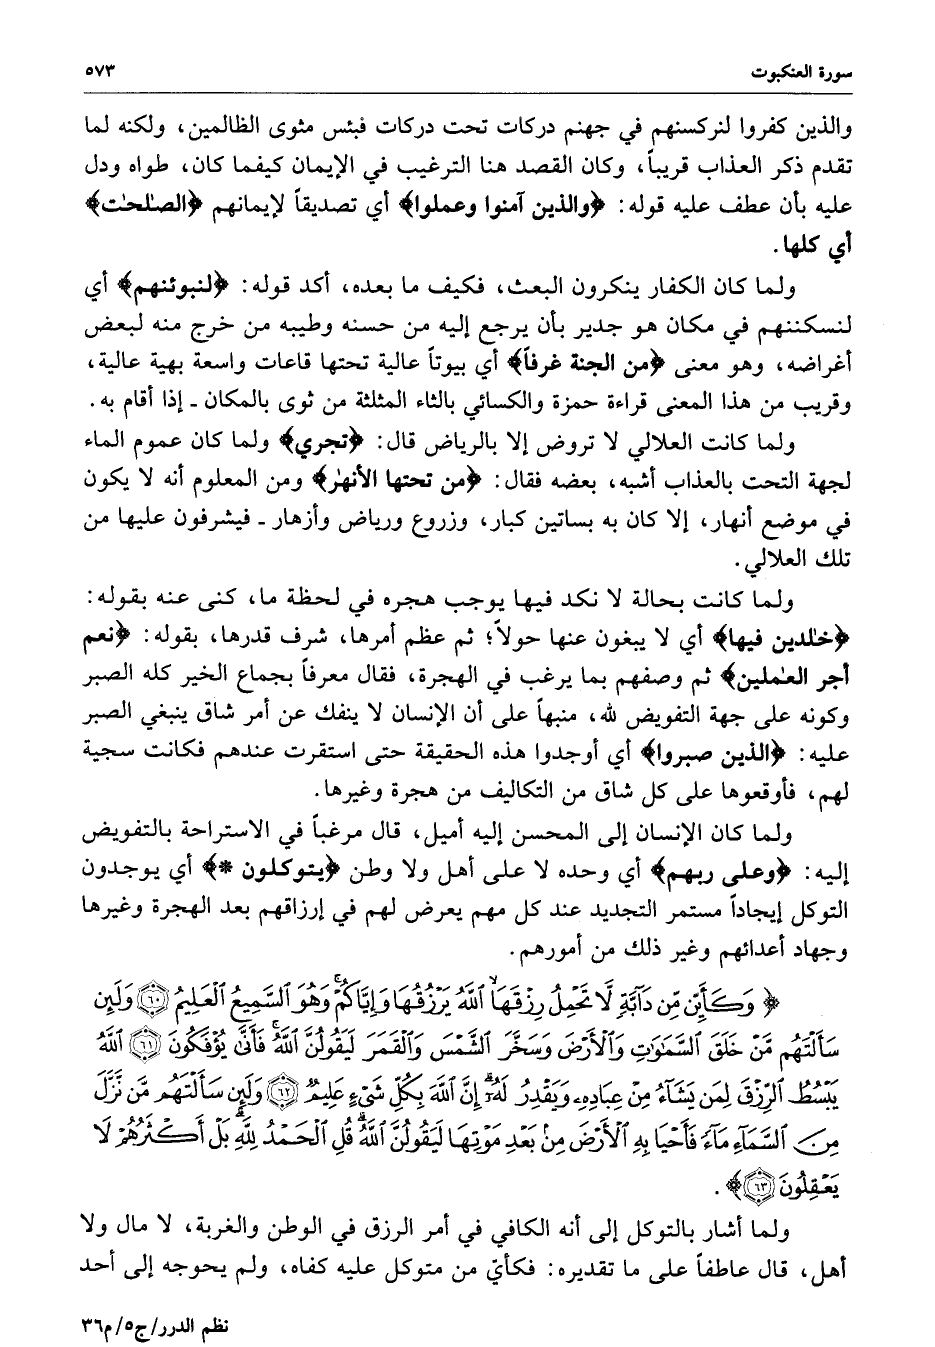 سورة العنكبوت ٥٧٣
والذين كفروا لنركسنهم في جهنم دركات تحت دركات فبئس مثوى الظالمين، ولكنه لما
تقدم ذكر العذاب قريباً، وكان القصد هنا الترغيب في الإيمان كيفما كان، طواه ودل
عليه بأن عطف عليه قوله: ﴿والذين آمنوا وعملوا﴾ أي تصديقاً لإيمانهم ﴿الصٰلحٰت﴾
أي كلها.
ولما كان الكفار ينكرون البعث، فكيف ما بعده، أكد قوله: ﴿لنبوئنهم﴾ أي
لنسكننهم في مكان هو جدير بأن يرجع إليه من حسنه وطيبه من خرج منه لبعض
أغراضه، وهو معنى ﴿من الجنة غرفاً﴾ أي بيوتاً عالية تحتها قاعات واسعة بهية عالية،
وقريب من هذا المعنى قراءة حمزة والكسائي بالثاء المثلثة من ثوى بالمكان ـ إذا أقام به.
ولما كانت العلالي لا تروض إلا بالرياض قال: ﴿تجري﴾ ولما كان عموم الماء
لجهة التحت بالعذاب أشبه، بعضه فقال: ﴿من تحتها الأنهٰر﴾ ومن المعلوم أنه لا يكون
في موضع أنهار، إلا كان به بساتين كبار، وزروع ورياض وأزهار ـ فيشرفون عليها من
تلك العلالي.
ولما كانت بحالة لا نكد فيها يوجب هجره في لحظة ما، كنى عنه بقوله:
﴿خٰلدين فيها﴾ أي لا يبغون عنها حولاً؛ ثم عظم أمرها، شرف قدرها، بقوله: ﴿نعم
أجر العٰملين﴾ ثم وصفهم بما يرغب في الهجرة، فقال معرفاً بجماع الخير كله الصبر
وكونه على جهة التفويض لله، منبهاً على أن الإنسان لا ينفك عن أمر شاق ينبغي الصبر
عليه: ﴿الذين صبروا﴾ أي أوجدوا هذه الحقيقة حتى استقرت عندهم فكانت سجية
لهم، فأوقعوها على كل شاق من التكاليف من هجرة وغيرها.
ولما كان الإنسان إلى المحسن إليه أميل، قال مرغباً في الاستراحة بالتفويض
إليه: ﴿وعلى ربهم﴾ أي وحده لا على أهل ولا وطن ﴿يتوكلون *﴾ أي يوجدون
التوكل إيجاداً مستمر التجديد عند كل مهم يعرض لهم في إرزاقهم بعد الهجرة وغيرها
وجهاد أعدائهم وغير ذلك من أمورهم.
﴿وَكَأَيِّن مِّن دَآبَّةٍ لَّا تَحْمِلُ رِزْقَهَا ٱللَّهُ يَرْزُقُهَا وَإِيَّاكُمْ وَهُوَ ٱلسَّمِيعُ ٱلْعَلِيمُ ٦٠ وَلَئِن
سَأَلْتَهُم مَّنْ خَلَقَ ٱلسَّمَٰوَٰتِ وَٱلْأَرْضَ وَسَخَّرَ ٱلشَّمْسَ وَٱلْقَمَرَ لَيَقُولُنَّ ٱللَّهُ فَأَنَّىٰ يُؤْفَكُونَ ٦١ ٱللَّهُ
يَبْسُطُ ٱلرِّزْقَ لِمَن يَشَآءُ مِنْ عِبَادِهِۦ وَيَقْدِرُ لَهُۥٓ إِنَّ ٱللَّهَ بِكُلِّ شَىْءٍ عَلِيمٌ ٦٢ وَلَئِن سَأَلْتَهُم مَّن نَّزَّلَ
مِنَ ٱلسَّمَآءِ مَآءً فَأَحْيَا بِهِ ٱلْأَرْضَ مِنۢ بَعْدِ مَوْتِهَا لَيَقُولُنَّ ٱللَّهُ قُلِ ٱلْحَمْدُ لِلَّهِ بَلْ أَكْثَرُهُمْ لَا
يَعْقِلُونَ ٦٣﴾.
ولما أشار بالتوكل إلى أنه الكافي في أمر الرزق في الوطن والغربة، لا مال ولا
أهل، قال عاطفاً على ما تقديره: فكأيّ من متوكل عليه كفاه، ولم يحوجه إلى أحد
نظم الدرر/ج٥/م٣٦